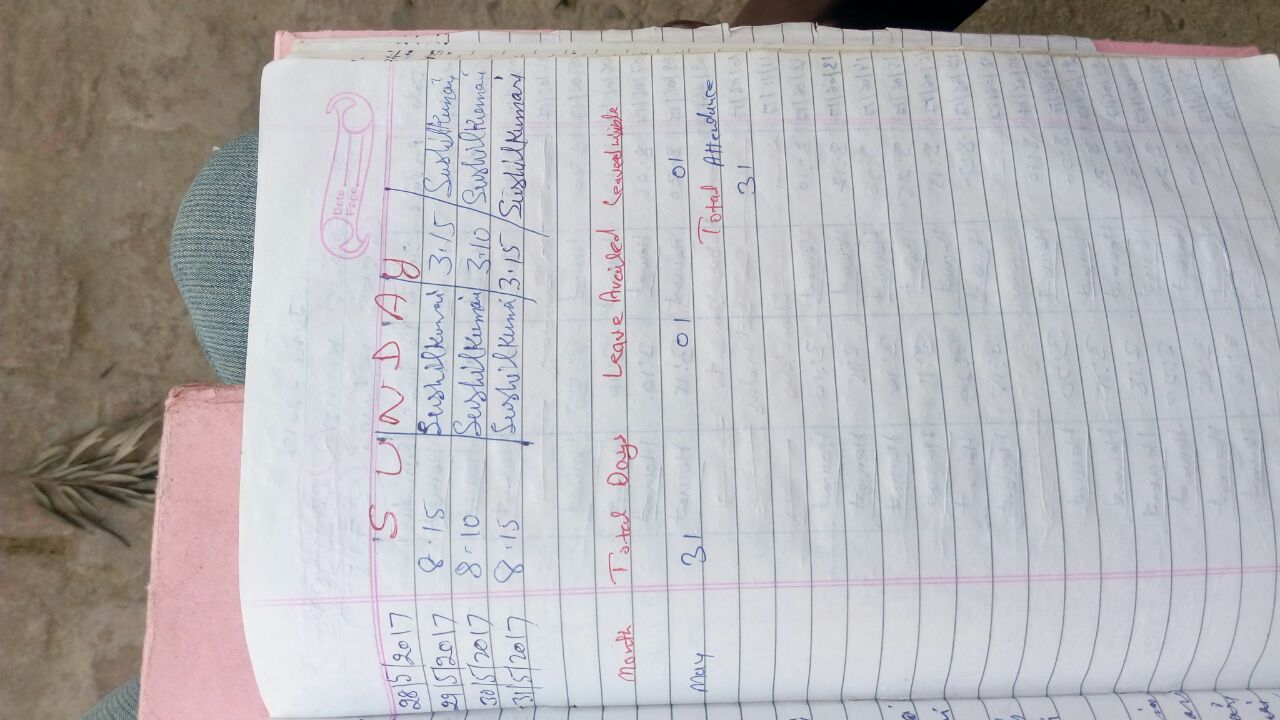 Date
Page
28/5/2017 S U N D A Y
29/5/2017 8.15 Sushilkumar 3.15 Sushilkumar
30/5/2017 8.10 Sushilkumar 3.10 Sushilkumar
31/5/2017 8.15 Sushilkumar 3.15 Sushilkumar
Month Total Days Leave Availed
May 31 01 01
Total Attendance
31